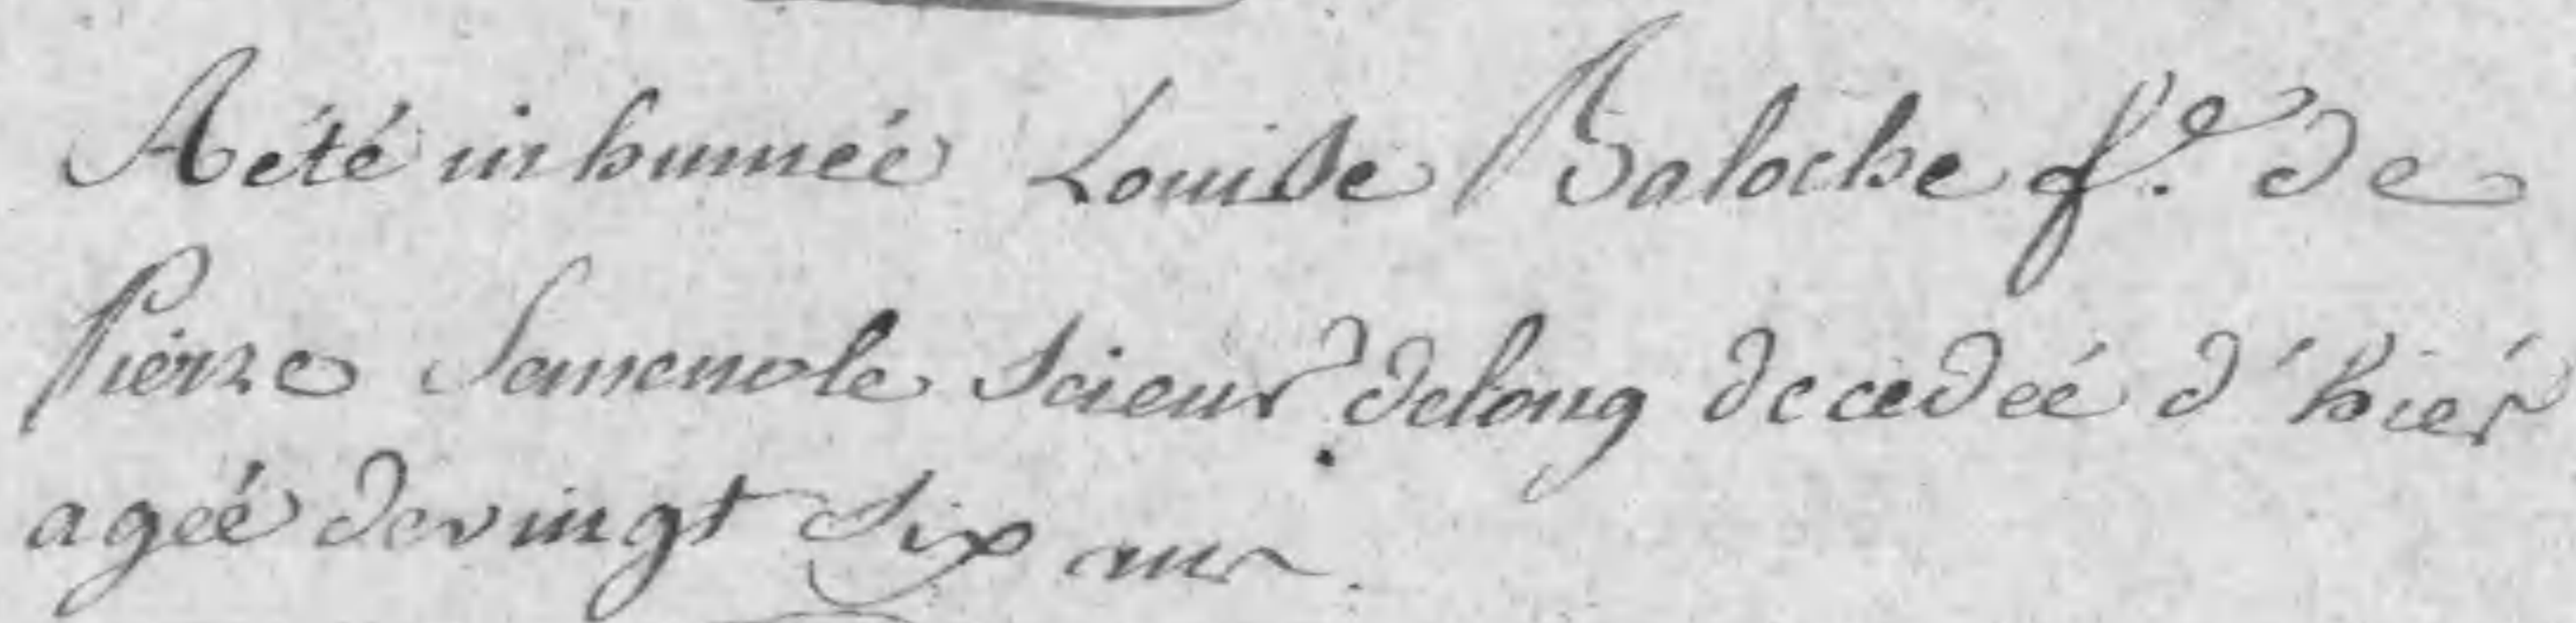 A été inhumée Louise Baloche f.e de
Pierre scieur delong decedeé d'hiér
ageé devingt six ans.